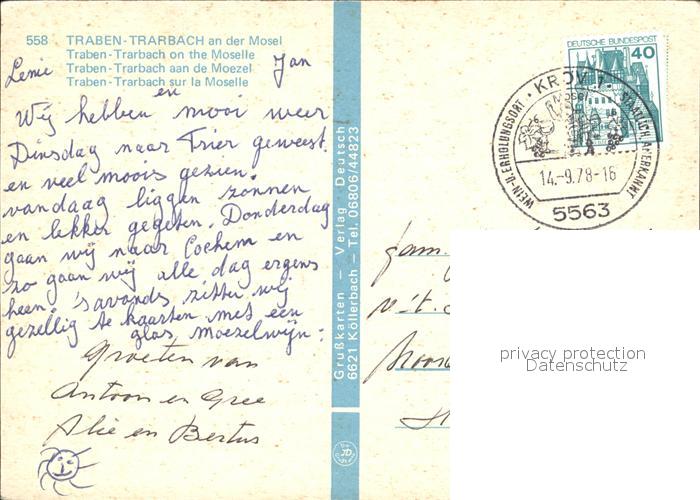 558 TRABEN-TRARBACH an der Mosel
Traben-Trarbach on the Moselle
Traben-Trarbach aan de Moezel
Traben-Trarbach sur la Moselle
Lenie en Jan
Wij hebben mooi weer
Dinsdag naar Trier geweest.
en veel moois gezien.
vandaag liggen zonnen
en lekker gegeten. Donderdag
gaan wij naar Cochem en
zo gaan wij alle dag ergens
heen. 's avonds zitten wij
gezellig te kaarten met een
glas moezelwijn.
Groeten van
Antoon en Gree
Alie en Bertus
Grußkarten — Verlag Deutsch
6621 Köllerbach — Tel. 06806/44823
DEUTSCHE BUNDESPOST
40
KRÖV
MOSEL
WEIN-U.ERHOLUNGSORT
STAATLICH ANERKANNT
14.-9.78-16
5563
fam.
v.d.
privacy protection
Datenschutz